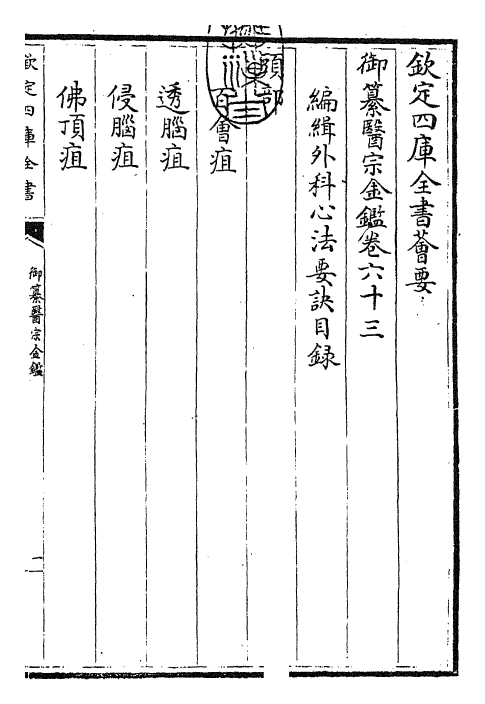 欽定四庫全書薈要
御纂醫宗金鑑卷六十三
編緝外科心法要訣目録
頭部
百會疽
透腦疽
侵腦疽
佛頂疽
欽定四庫全書
御纂醫宗金鑑
一